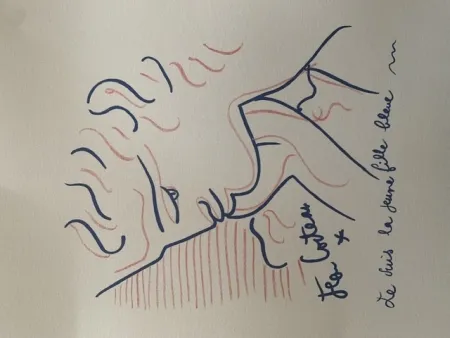 Jean Cocteau
Je suis la jeune fille bleue